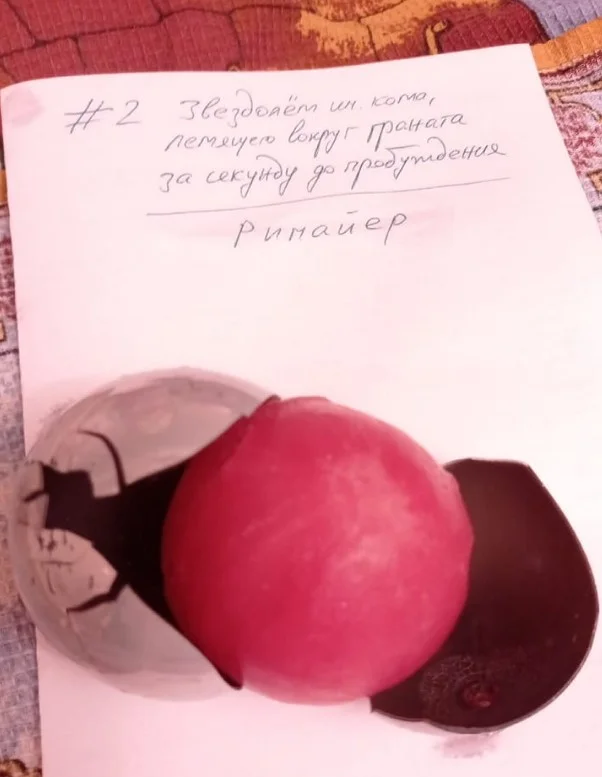 #2 Звездолёт им. кома,
летящего вокруг граната
за секунду до пробуждения
Римайер